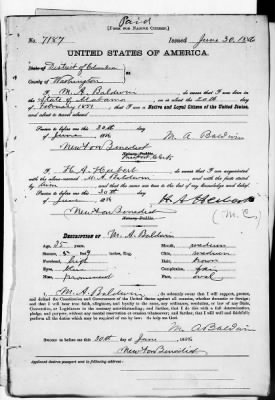 Paid
[FORM FOR NATIVE CITIZEN.]
No. 7187 Issued June 30, 1886
UNITED STATES OF AMERICA.
State of District of Columbia
County of Washington
I, M. A. Baldwin, do swear that I was born in the
State of Alabama, on or about the 20th day
of February 1851; that I am a Native and Loyal Citizen of the United States,
and about to travel abroad
Sworn to before me this 30th day
of June 1886 M. A. Baldwin
Newton Benedict
Notary Public.
I, H. A. Herbert, do swear that I am acquainted
with the above named M. A. Baldwin, and with the facts stated
by him and that the same are true to the best of my knowledge and belief.
Sworn to before me this 30th day
of June 1886 H. A. Herbert
Newton Benedict (M.C.)
DESCRIPTION OF M. A. Baldwin
Age, 35 years. Mouth, medium
Stature, 5 feet 9 inches, Eng. Chin, medium
Forehead, high Hair, brown
Eyes, blue Complexion, fair
Nose, prominent Face, oval
I, M. A. Baldwin, do solemnly swear that I will support, protect,
and defend the Constitution and Government of the United States against all enemies, whether domestic or foreign;
and that I will bear true faith, allegiance, and loyalty to the same, any ordinance, resolution, or law of any State,
Convention, or Legislature to the contrary notwithstanding; and further, that I do this with a full determination,
pledge, and purpose, without any mental reservation or evasion whatsoever; and further, that I will well and faithfully
perform all the duties which may be required of me by law: So help me God.
M. A. Baldwin
Sworn to before me this 30th day of June 1886
Newton Benedict
Applicant desires passport sent to following address: